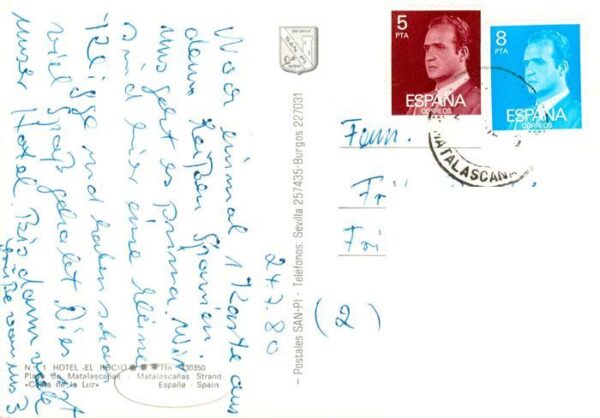 24.7.80
Noch einmal 1 Karte aus
dem heißen Spanien.
uns geht es prima. Wir
sind hier eine kleine
und haben schon
viel Spaß gehabt. Dies ist
unser Hotel. Bis dann viele
Grüße von uns 3
SAN-PI
– Postales SAN-PI - Teléfonos: Sevilla 257435-Burgos 227031
5
PTA
ESPAÑA
CORREOS
8
PTA
ESPAÑA
CORREOS
MATALASCAÑAS
Fam.
Fri
(2)
HOTEL EL ROCIO
Playa de Matalascañas - Matalascañas Strand
«Costa de la Luz» España - Spain